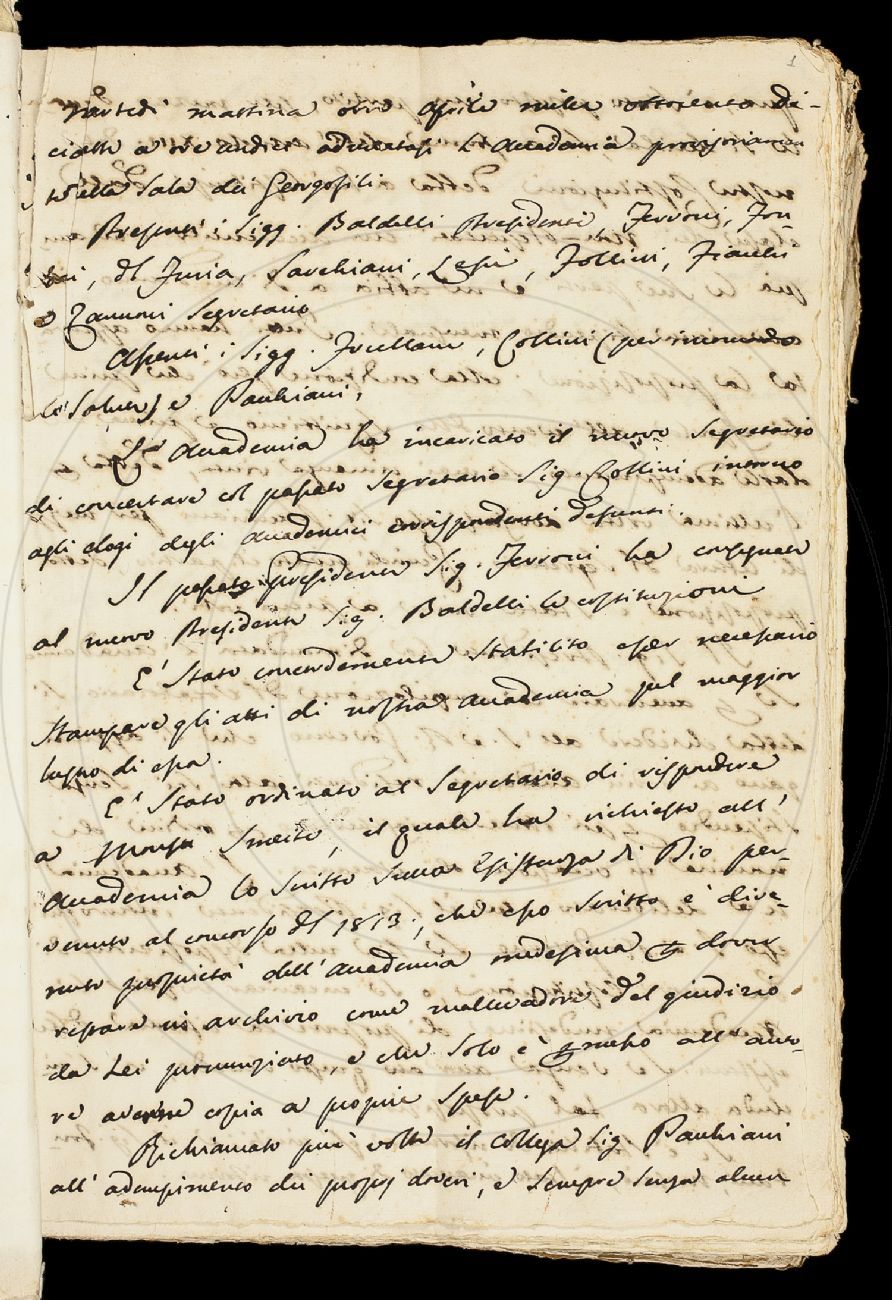 1
Martedì mattina otto Aprile mille ottocento di-
ciotto a ore undici adunatasi l'Accademia provisoriamen
te nella Sala dei Georgofili
Presenti i Sigg. Baldelli Presidente, Ferroni, Fon-
tani, del Furia, Sarchiani, Lessi, Follini, Fiacchi
e Zannoni Segretario
Assenti i Sigg. Frullani, Collini (per incomodo
di salute) e Pauliani,
L'Accademia ha incaricato il nuovo Segretario
di concertare col passato Segretario Sig. Collini intorno
agli elogi degli Accademici corrispondenti defunti.
Il passato Presidente Sig. Ferroni ha consegnate
al nuovo Presidente Sig. Baldelli le costituzioni
E' stato concordemente stabilito esser necessario
stampare gli atti di nostra Accademia pel maggior
lustro di essa.
E' stato ordinato al Segretario di rispondere
a il quale ha richiesto all'
Accademia lo scritto sulla Esistenza di Dio per-
venuto al concorso del 1813, che esso scritto è dive-
nuto proprietà dell'Accademia medesima e dover
restare in archivio come mallevadore del giudizio
da Lei pronunziato, e che solo è permesso all'auto-
re averne copia a proprie spese.
Richiamato più volte il collega Sig. Pauliani
all'adempimento dei proprj doveri, e sempre senza alcun